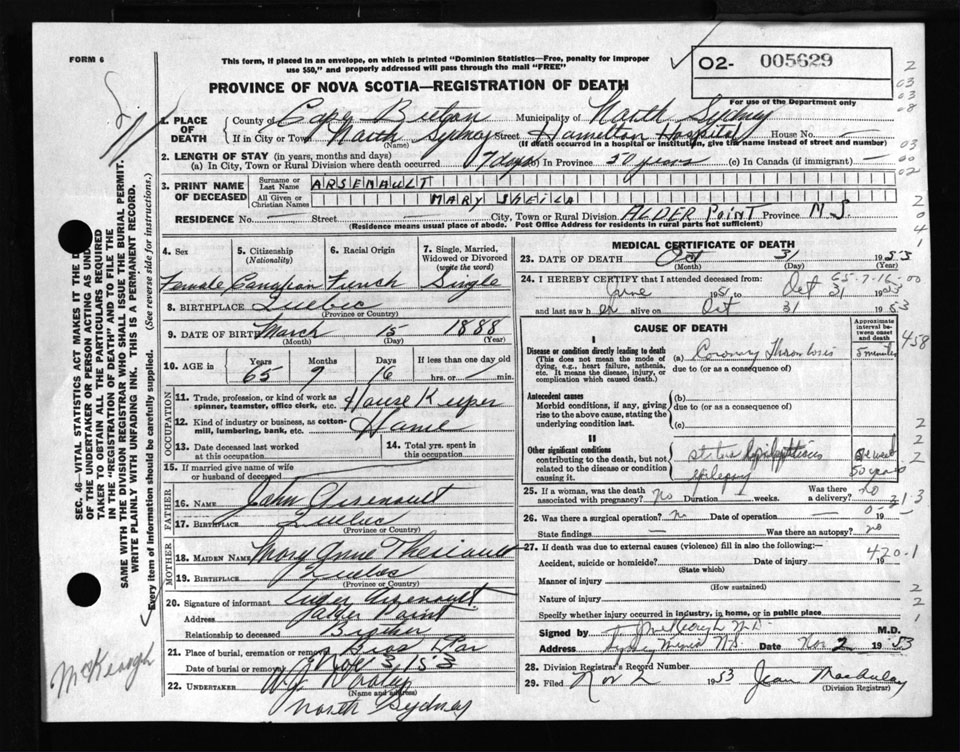 FORM 6
This form, if placed in an envelope, on which is printed "Dominion Statistics—Free, penalty for improper
use $50," and properly addressed will pass through the mail "FREE"
O2- 005629
PROVINCE OF NOVA SCOTIA—REGISTRATION OF DEATH
For use of the Department only
1. PLACE OF DEATH
County of Cape Breton Municipality of North Sydney
If in City or Town North Sydney Street Hamelton Hospital House No. —
(Name) (If death occurred in a hospital or institution, give the name instead of street and number)
2. LENGTH OF STAY (in years, months and days)
(a) In City, Town or Rural Division where death occurred 7 days (b) In Province 50 years (c) In Canada (if immigrant) —
3. PRINT NAME OF DECEASED
Surname or Last Name ARSENAULT
All Given or Christian Names MARY SHEILA
RESIDENCE No. — Street — City, Town or Rural Division ALDER POINT Province N.S.
(Residence means usual place of abode. Post Office Address for residents in rural parts not sufficient)
4. Sex
Female
5. Citizenship
(Nationality)
Canadian
6. Racial Origin
French
7. Single, Married,
Widowed or Divorced
(write the word)
Single
8. BIRTHPLACE Quebec
(Province or Country)
9. DATE OF BIRTH March 15 1888
(Month) (Day) (Year)
10. AGE in
Years Months Days If less than one day old
65 7 16 hrs. or min.
OCCUPATION
11. Trade, profession, or kind of work as
spinner, teamster, office clerk, etc. House Keeper
12. Kind of industry or business, as cotton-
mill, lumbering, bank, etc. Home
13. Date deceased last worked
at this occupation
14. Total yrs. spent in
this occupation
15. If married give name of wife
or husband of deceased
FATHER
16. NAME John Arsenault
17. BIRTHPLACE Quebec
(Province or Country)
MOTHER
18. MAIDEN NAME Mary Anne
19. BIRTHPLACE Quebec
(Province or Country)
20. Signature of informant Arsenault
Address Alder Point
Relationship to deceased Brother
21. Place of burial, cremation or removal Bras
Date of burial or removal Nov 3, 1953
22. UNDERTAKER
(Name and address)
North Sydney
MEDICAL CERTIFICATE OF DEATH
23. DATE OF DEATH Oct 31 1953
(Month) (Day)
24. I HEREBY CERTIFY that I attended deceased from:
65-7-16-00
June 1951 to Oct 31 1953
and last saw her alive on Oct 31 1953
CAUSE OF DEATH
Approximate interval between onset and death
I
Disease or condition directly leading to death
(This does not mean the mode of
dying, e.g., heart failure, asthenia,
etc. It means the disease, injury, or
complication which caused death.)
(a) Coronary Thrombosis 5 minutes
due to (or as a consequence of)
458
Antecedent causes
Morbid conditions, if any, giving
rise to the above cause, stating the
underlying condition last.
(b)
due to (or as a consequence of)
(c)
II
Other significant conditions
contributing to the death, but not
related to the disease or condition
causing it.
status epilepticus week
epilepsy 50 years
25. If a woman, was the death
associated with pregnancy? No Duration — weeks. Was there
a delivery? no
26. Was there a surgical operation? No Date of operation —
State findings — Was there an autopsy? no
27. If death was due to external causes (violence) fill in also the following:—
420.1
Accident, suicide or homicide? Date of injury 19
(State which)
Manner of injury
(How sustained)
Nature of injury
Specify whether injury occurred in industry, in home, or in public place
Signed by McKeough M.D. M.D.
Address Sydney Mines N.S. Date Nov 2 1953
28. Division Registrar's Record Number
29. Filed Nov 2 1953 Jean MacAulay
(Division Registrar)
SEC. 46—VITAL STATISTICS ACT MAKES IT THE D
OF THE UNDERTAKER OR PERSON ACTING AS UNDER-
TAKER TO OBTAIN ALL THE PARTICULARS REQUIRED
IN THE "REGISTRATION OF DEATH" AND TO FILE THE
SAME WITH THE DIVISION REGISTRAR WHO SHALL ISSUE THE BURIAL PERMIT.
WRITE PLAINLY WITH UNFADING INK. THIS IS A PERMANENT RECORD.
Every item of information should be carefully supplied. (See reverse side for instructions.)
McKeough